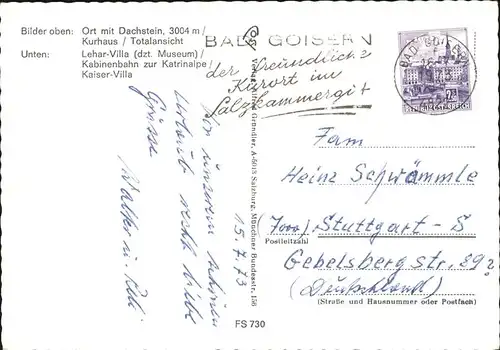 Bilder oben: Ort mit Dachstein, 3004 m /
Kurhaus / Totalansicht
Unten: Lehar-Villa (dzt. Museum) /
Kabinenbahn zur Katrinalpe /
Kaiser-Villa
BAD GOISERN
der freundliche
Kurort im
Salzkammergut
BAD GOISERN
15.7.73
Von unserem schönen
Urlaub recht liebe
Grüsse
Walter u.
Verlag Alfred Gründler, A-5013 Salzburg, Münchner Bundesstr. 156
Fam
Heinz Schwämmle
7000/ Stuttgart-S
Postleitzahl
Gebelsbergstr. 89
(Deutschland)
(Straße und Hausnummer oder Postfach)
FS 730